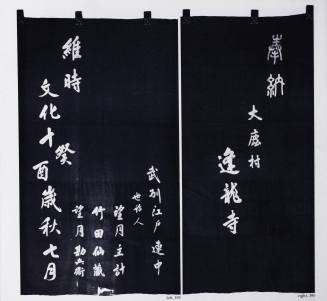 奉納
逢龍寺
武州江戸連中
世話人
望月主計
竹田仙蔵
望月勘兵衛
維時
文化十癸酉歳秋七月